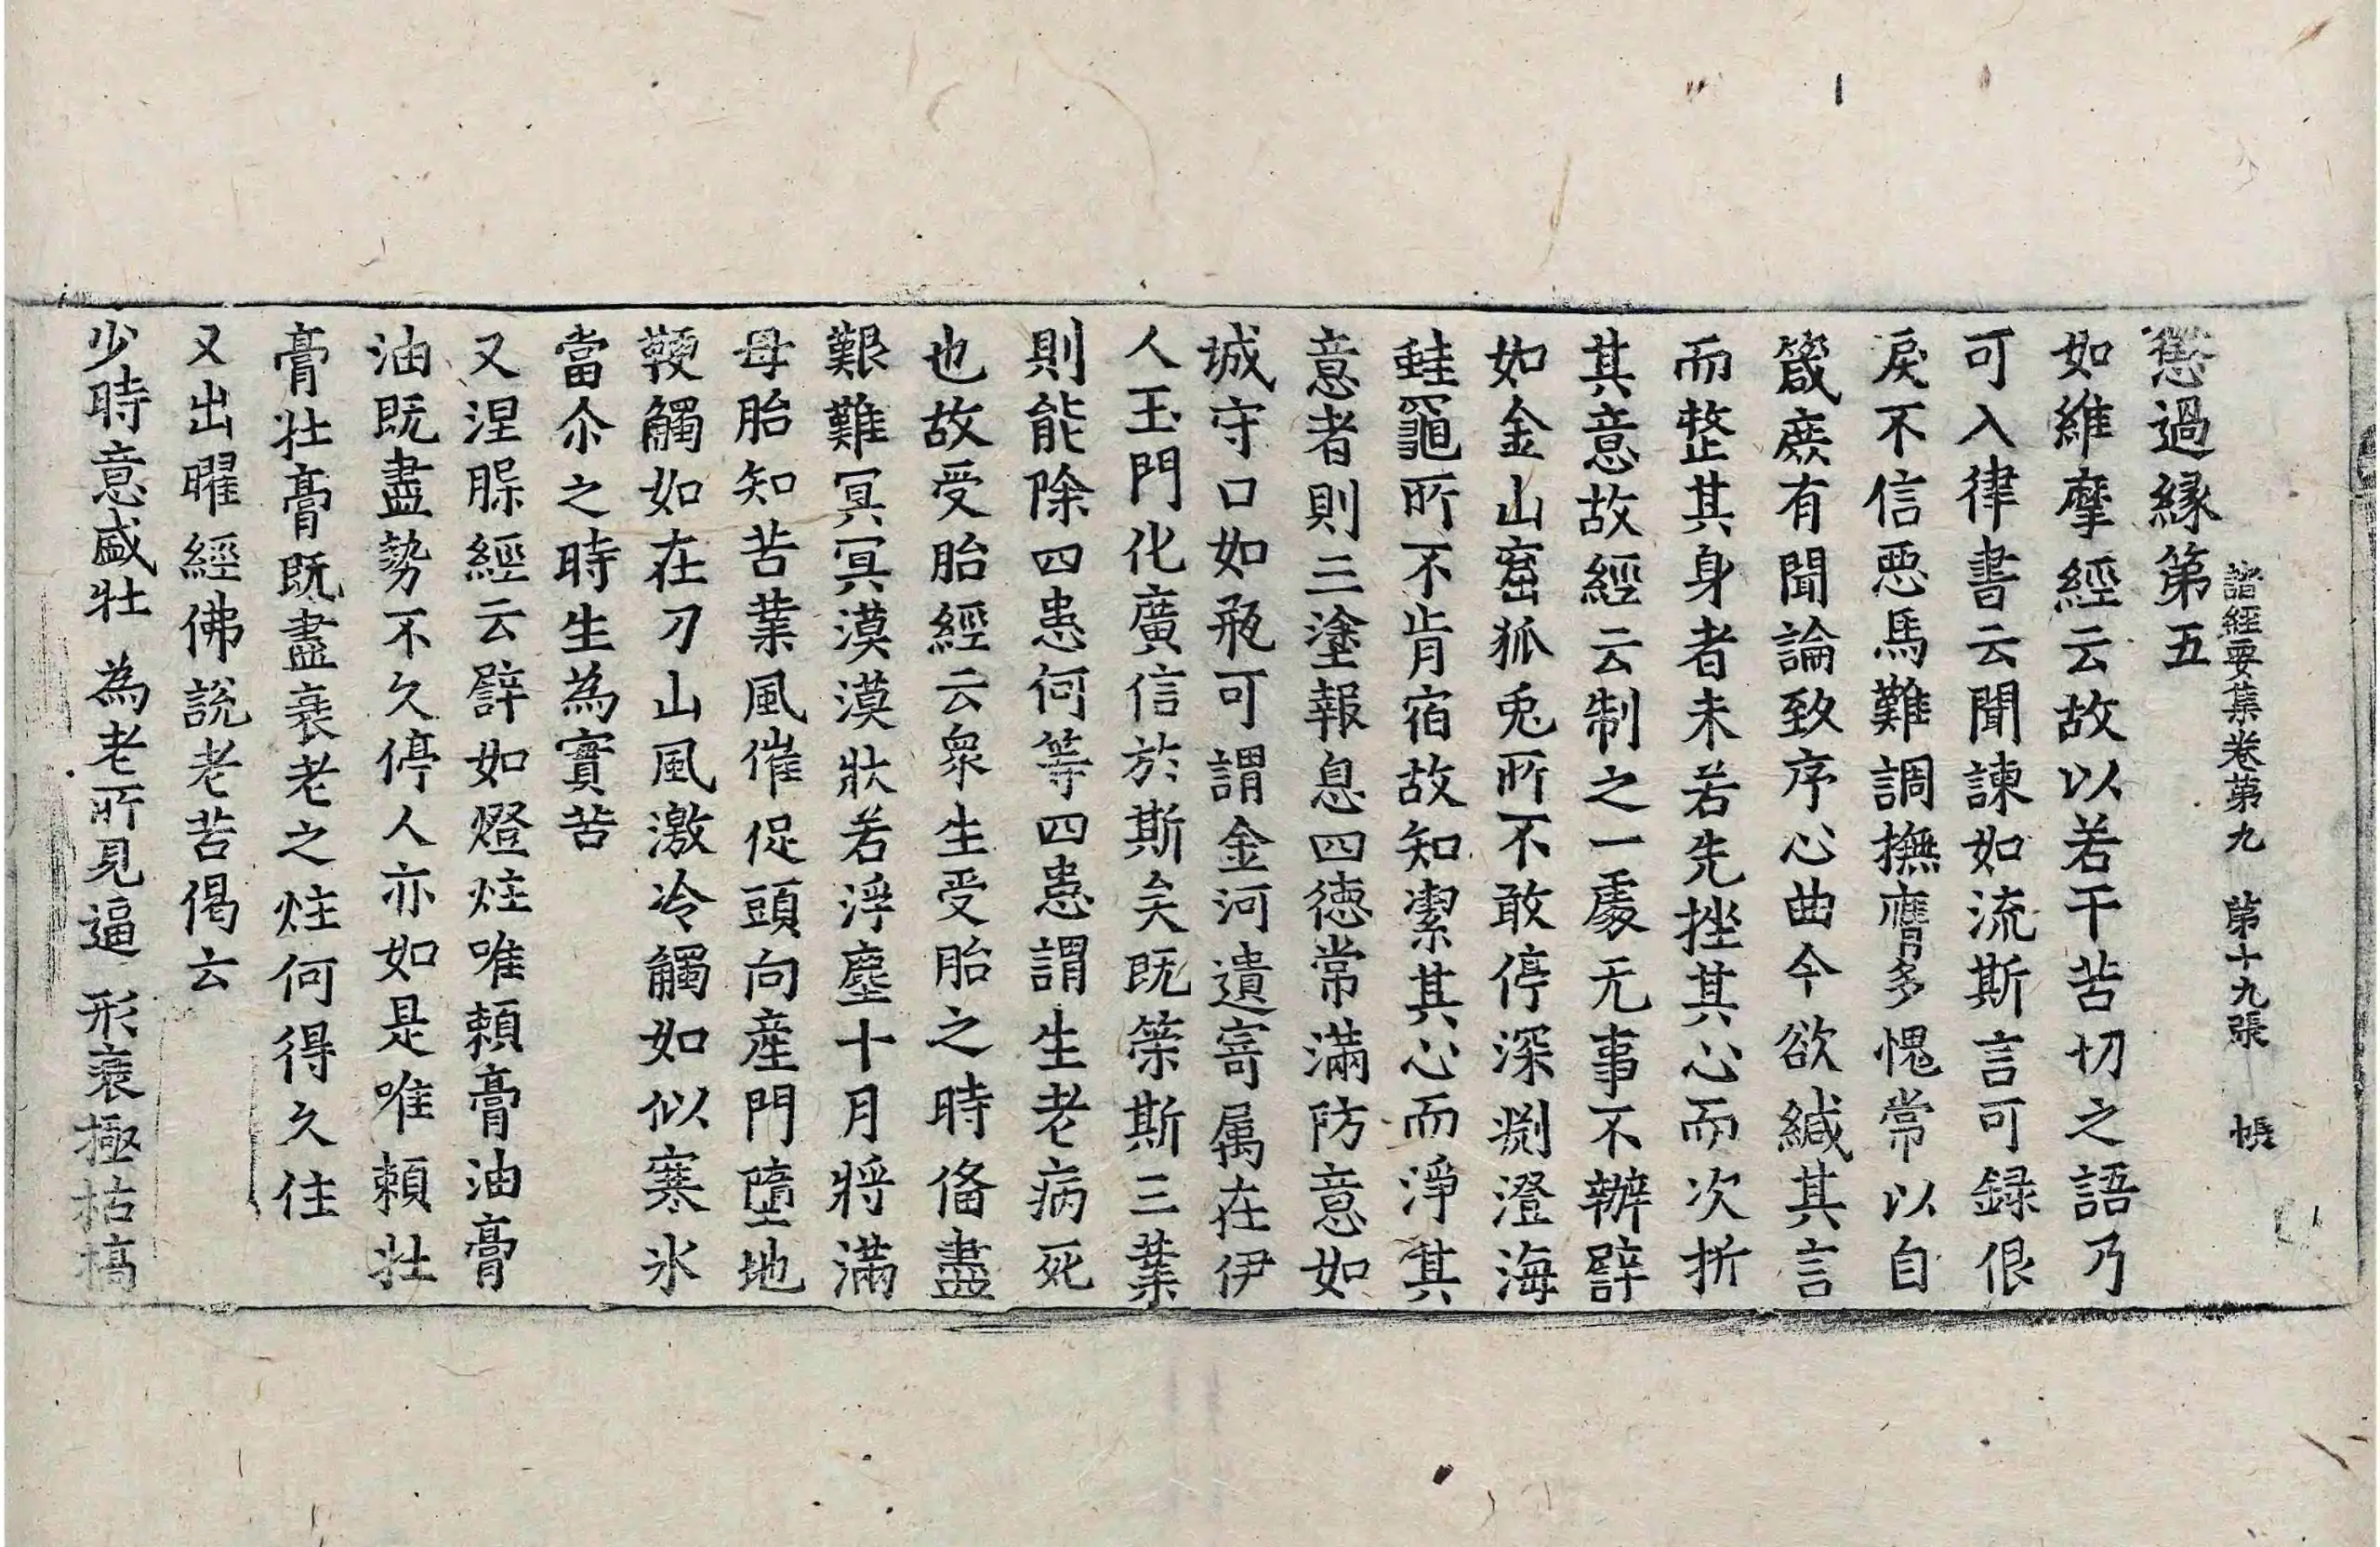 諸經要集卷第九 第十九張 帳
懲過緣第五
如維摩經云故以若干苦切之語乃
可入律書云聞諫如流斯言可録佷
戾不信惡馬難調撫膺多愧常以自
箴庶有聞論致序心曲今欲緘其言
而整其身者未若先挫其心而次折
其意故經云制之一處无事不辦譬
如金山窟狐兎所不敢停深渕澄海
蛙黽所不肯宿故知潔其心而淨其
意者則三塗報息四徳常滿防意如
城守口如瓶可謂金河遺寄属在伊
人玉門化廣信於斯矣既策斯三業
則能除四患何等四患謂生老病死
也故受胎經云衆生受胎之時俻盡
艱難冥冥漠漠狀若浮塵十月將滿
母胎知苦業風催促頭向産門墮地
鞕觸如在刀山風激冷觸如似寒氷
當尒之時生為實苦
又涅槃經云譬如燈炷唯頼膏油膏
油既盡勢不久停人亦如是唯頼壯
膏壯膏既盡衰老之炷何得久住
又出曜經佛説老苦偈云
少時意盛壯 為老所見逼 形衰極枯槁